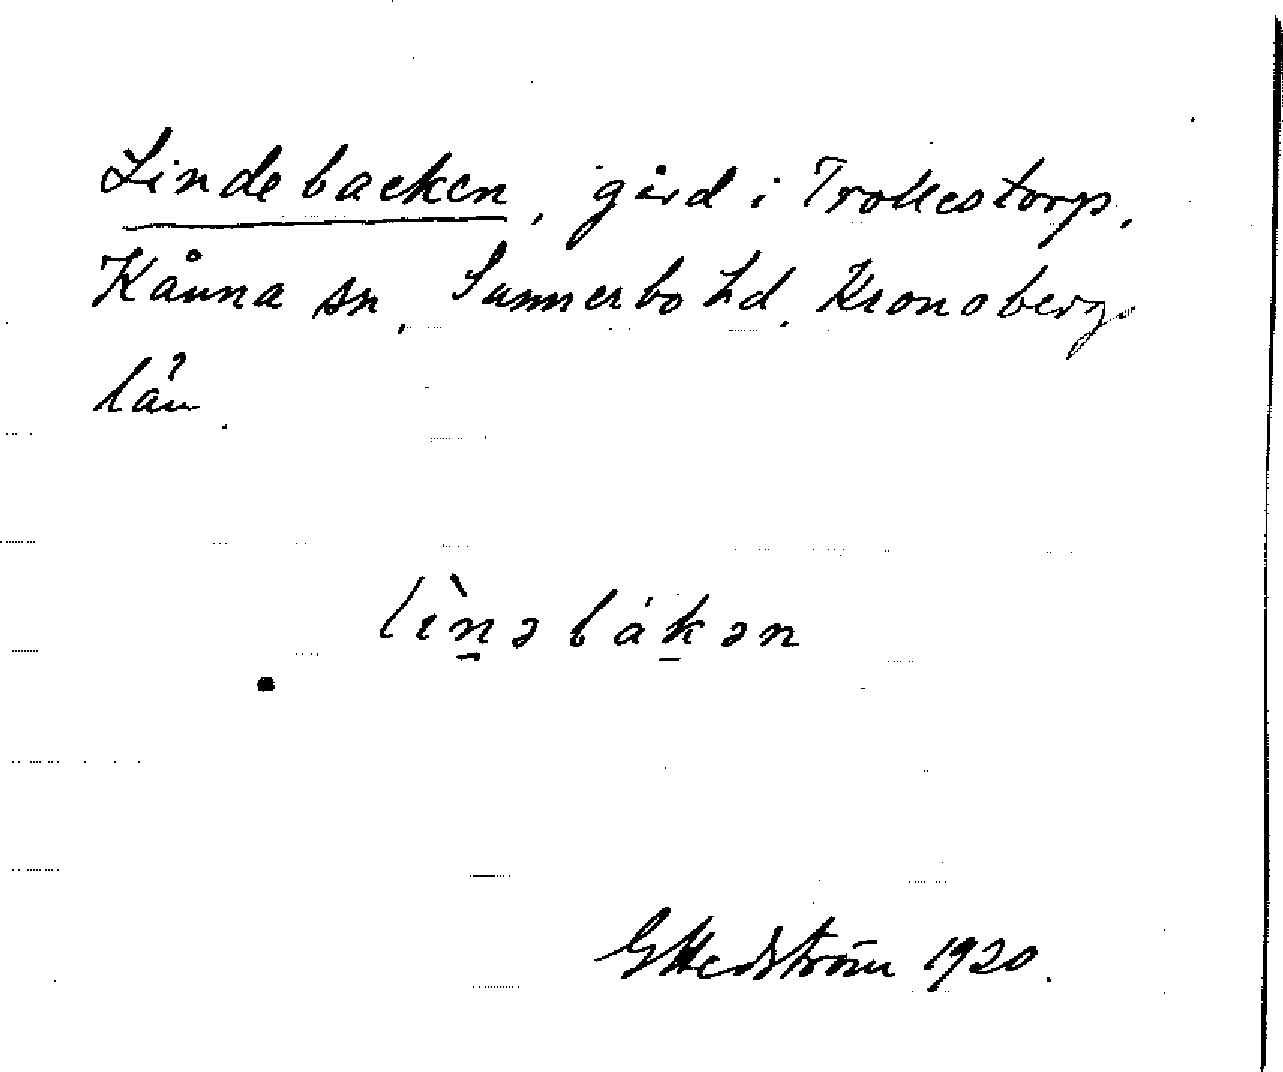 Lindebacken, gård i Trollestorp,
Kånna sn, Sunnerbo hd, Kronoberg
län.
lìnəbákən
G Hedström 1920.